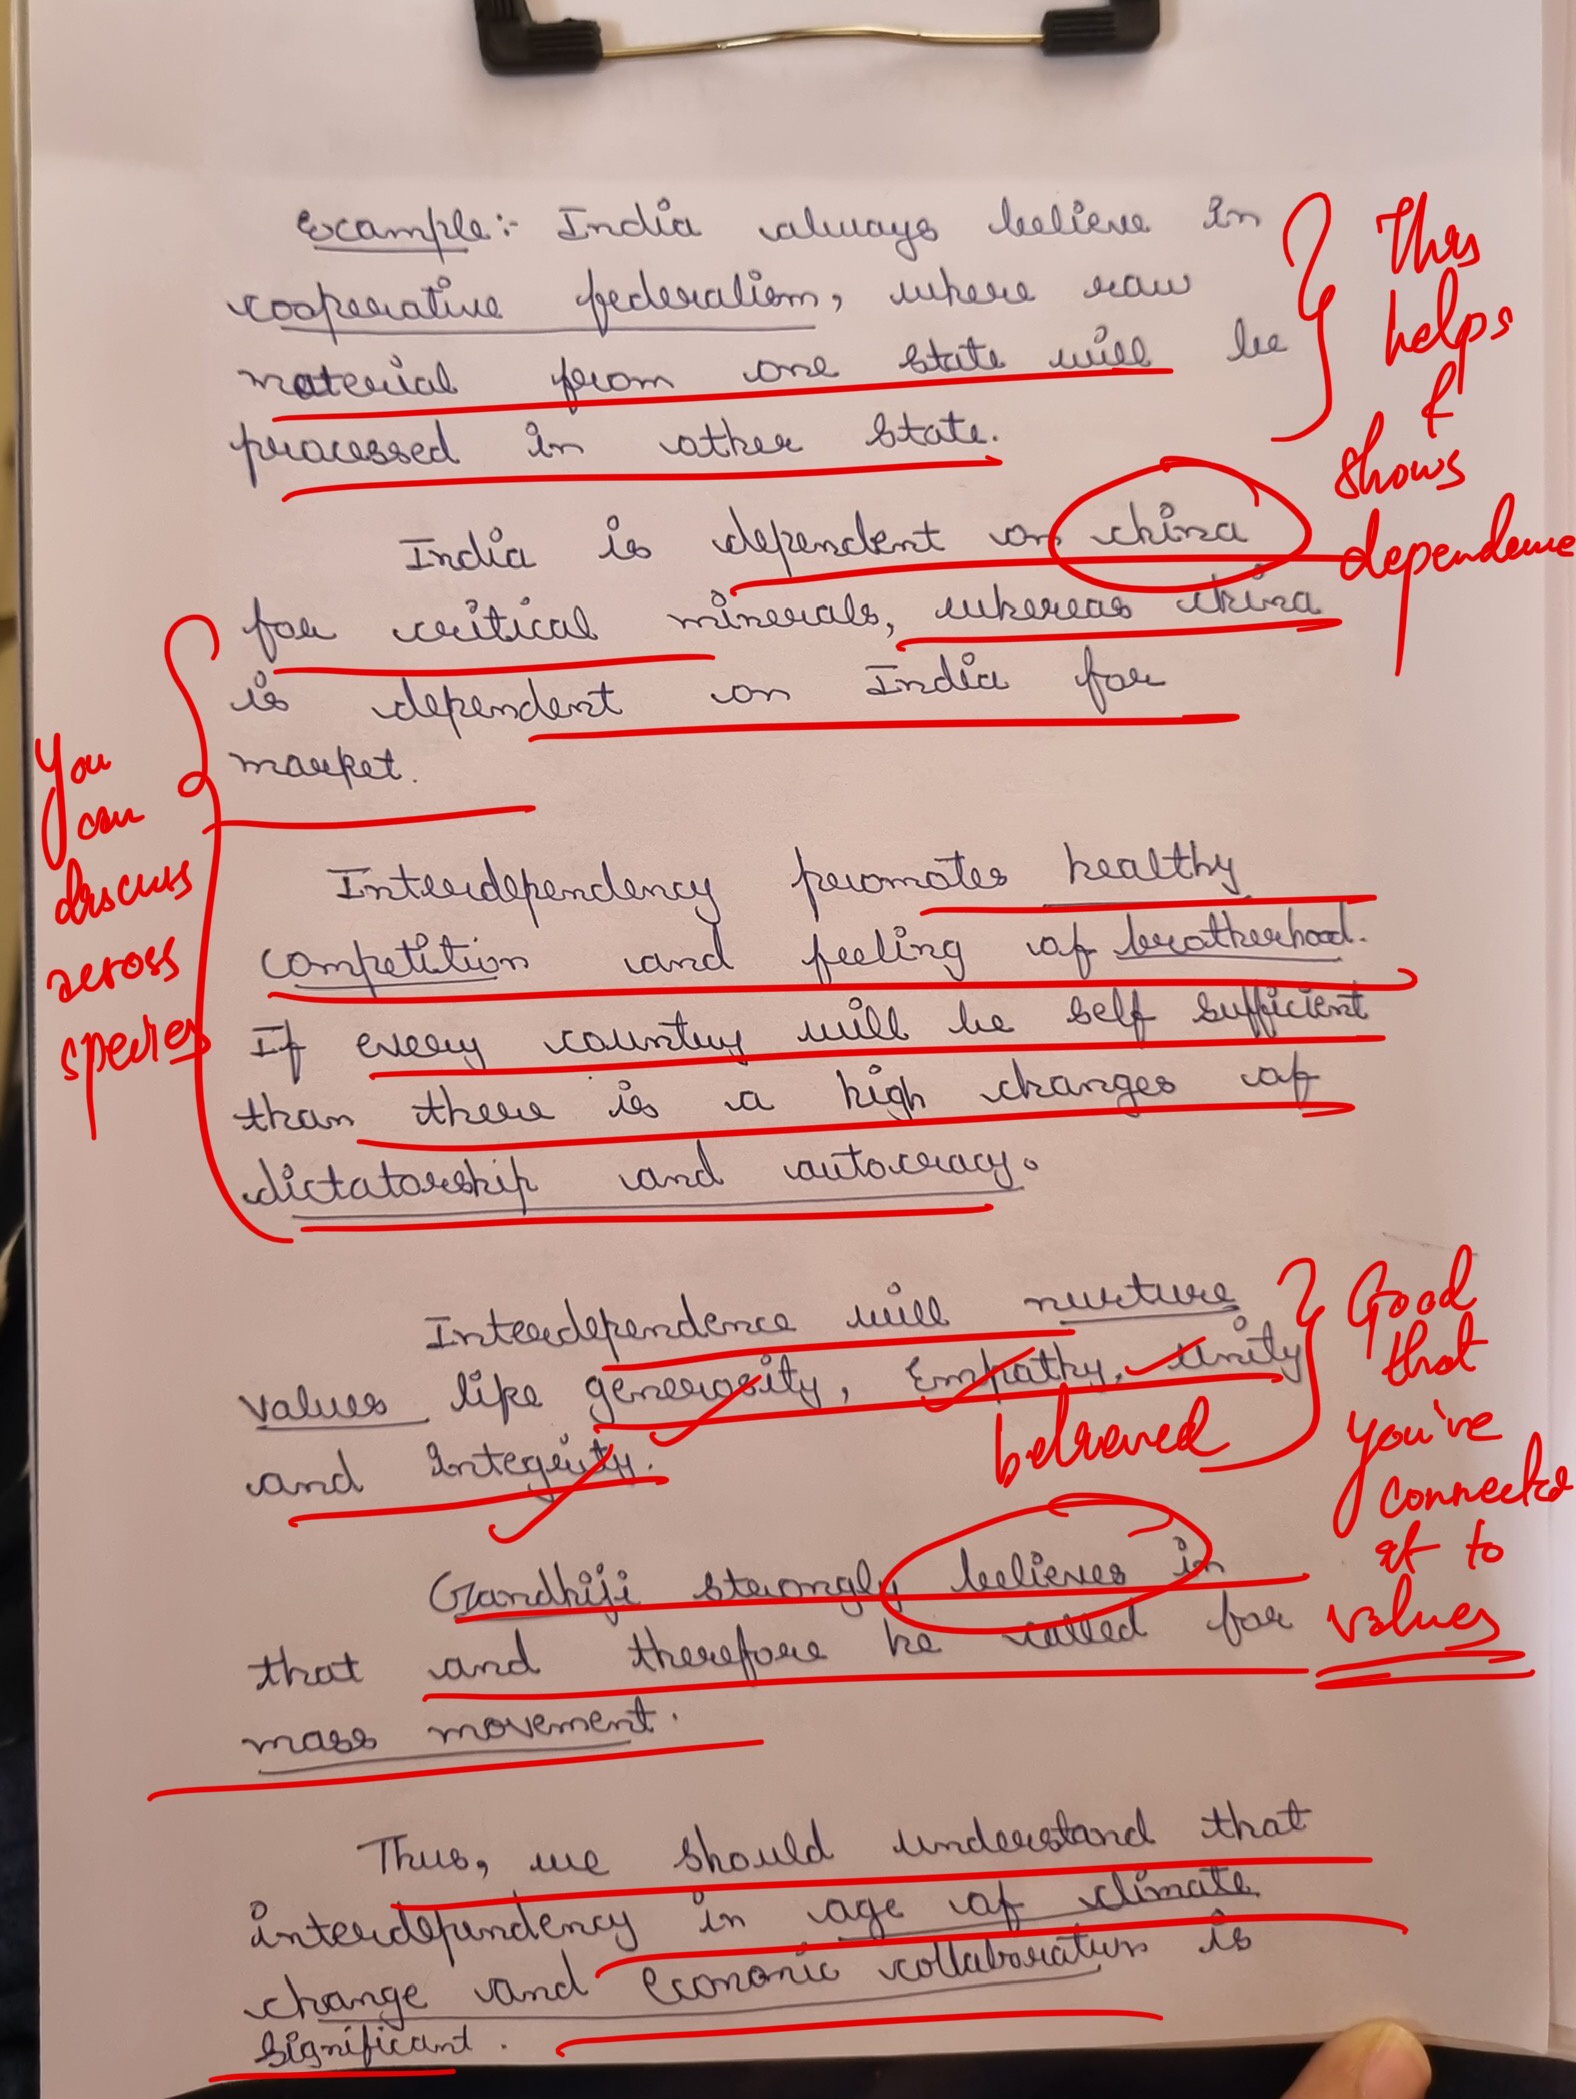 Example:- India always believe in
cooperative federalism, where raw
material from one state will be
processed in other state.
This
helps
&
shows
dependence
India is dependent on china
for critical minerals, whereas china
is dependent on India for
market.
You
can
discuss
across
species
Interdependency promotes healthy
competition and feeling of brotherhood.
If every country will be self sufficient
than there is a high changes of
dictatorship and autocracy.
Interdependence will nurture
values like generosity, Empathy, Unity
and integrity.
believed
Good
that
you've
connected
it to
values
Gandhiji strongly believes in
that and therefore he called for
mass movement.
Thus, we should understand that
interdependency in age of climate
change and economic collaboration is
significant.